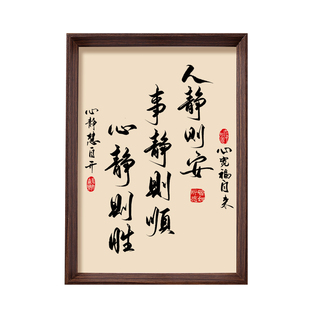 心宽福自来
人静则安
事静則順
心静則胜
心静慧自开